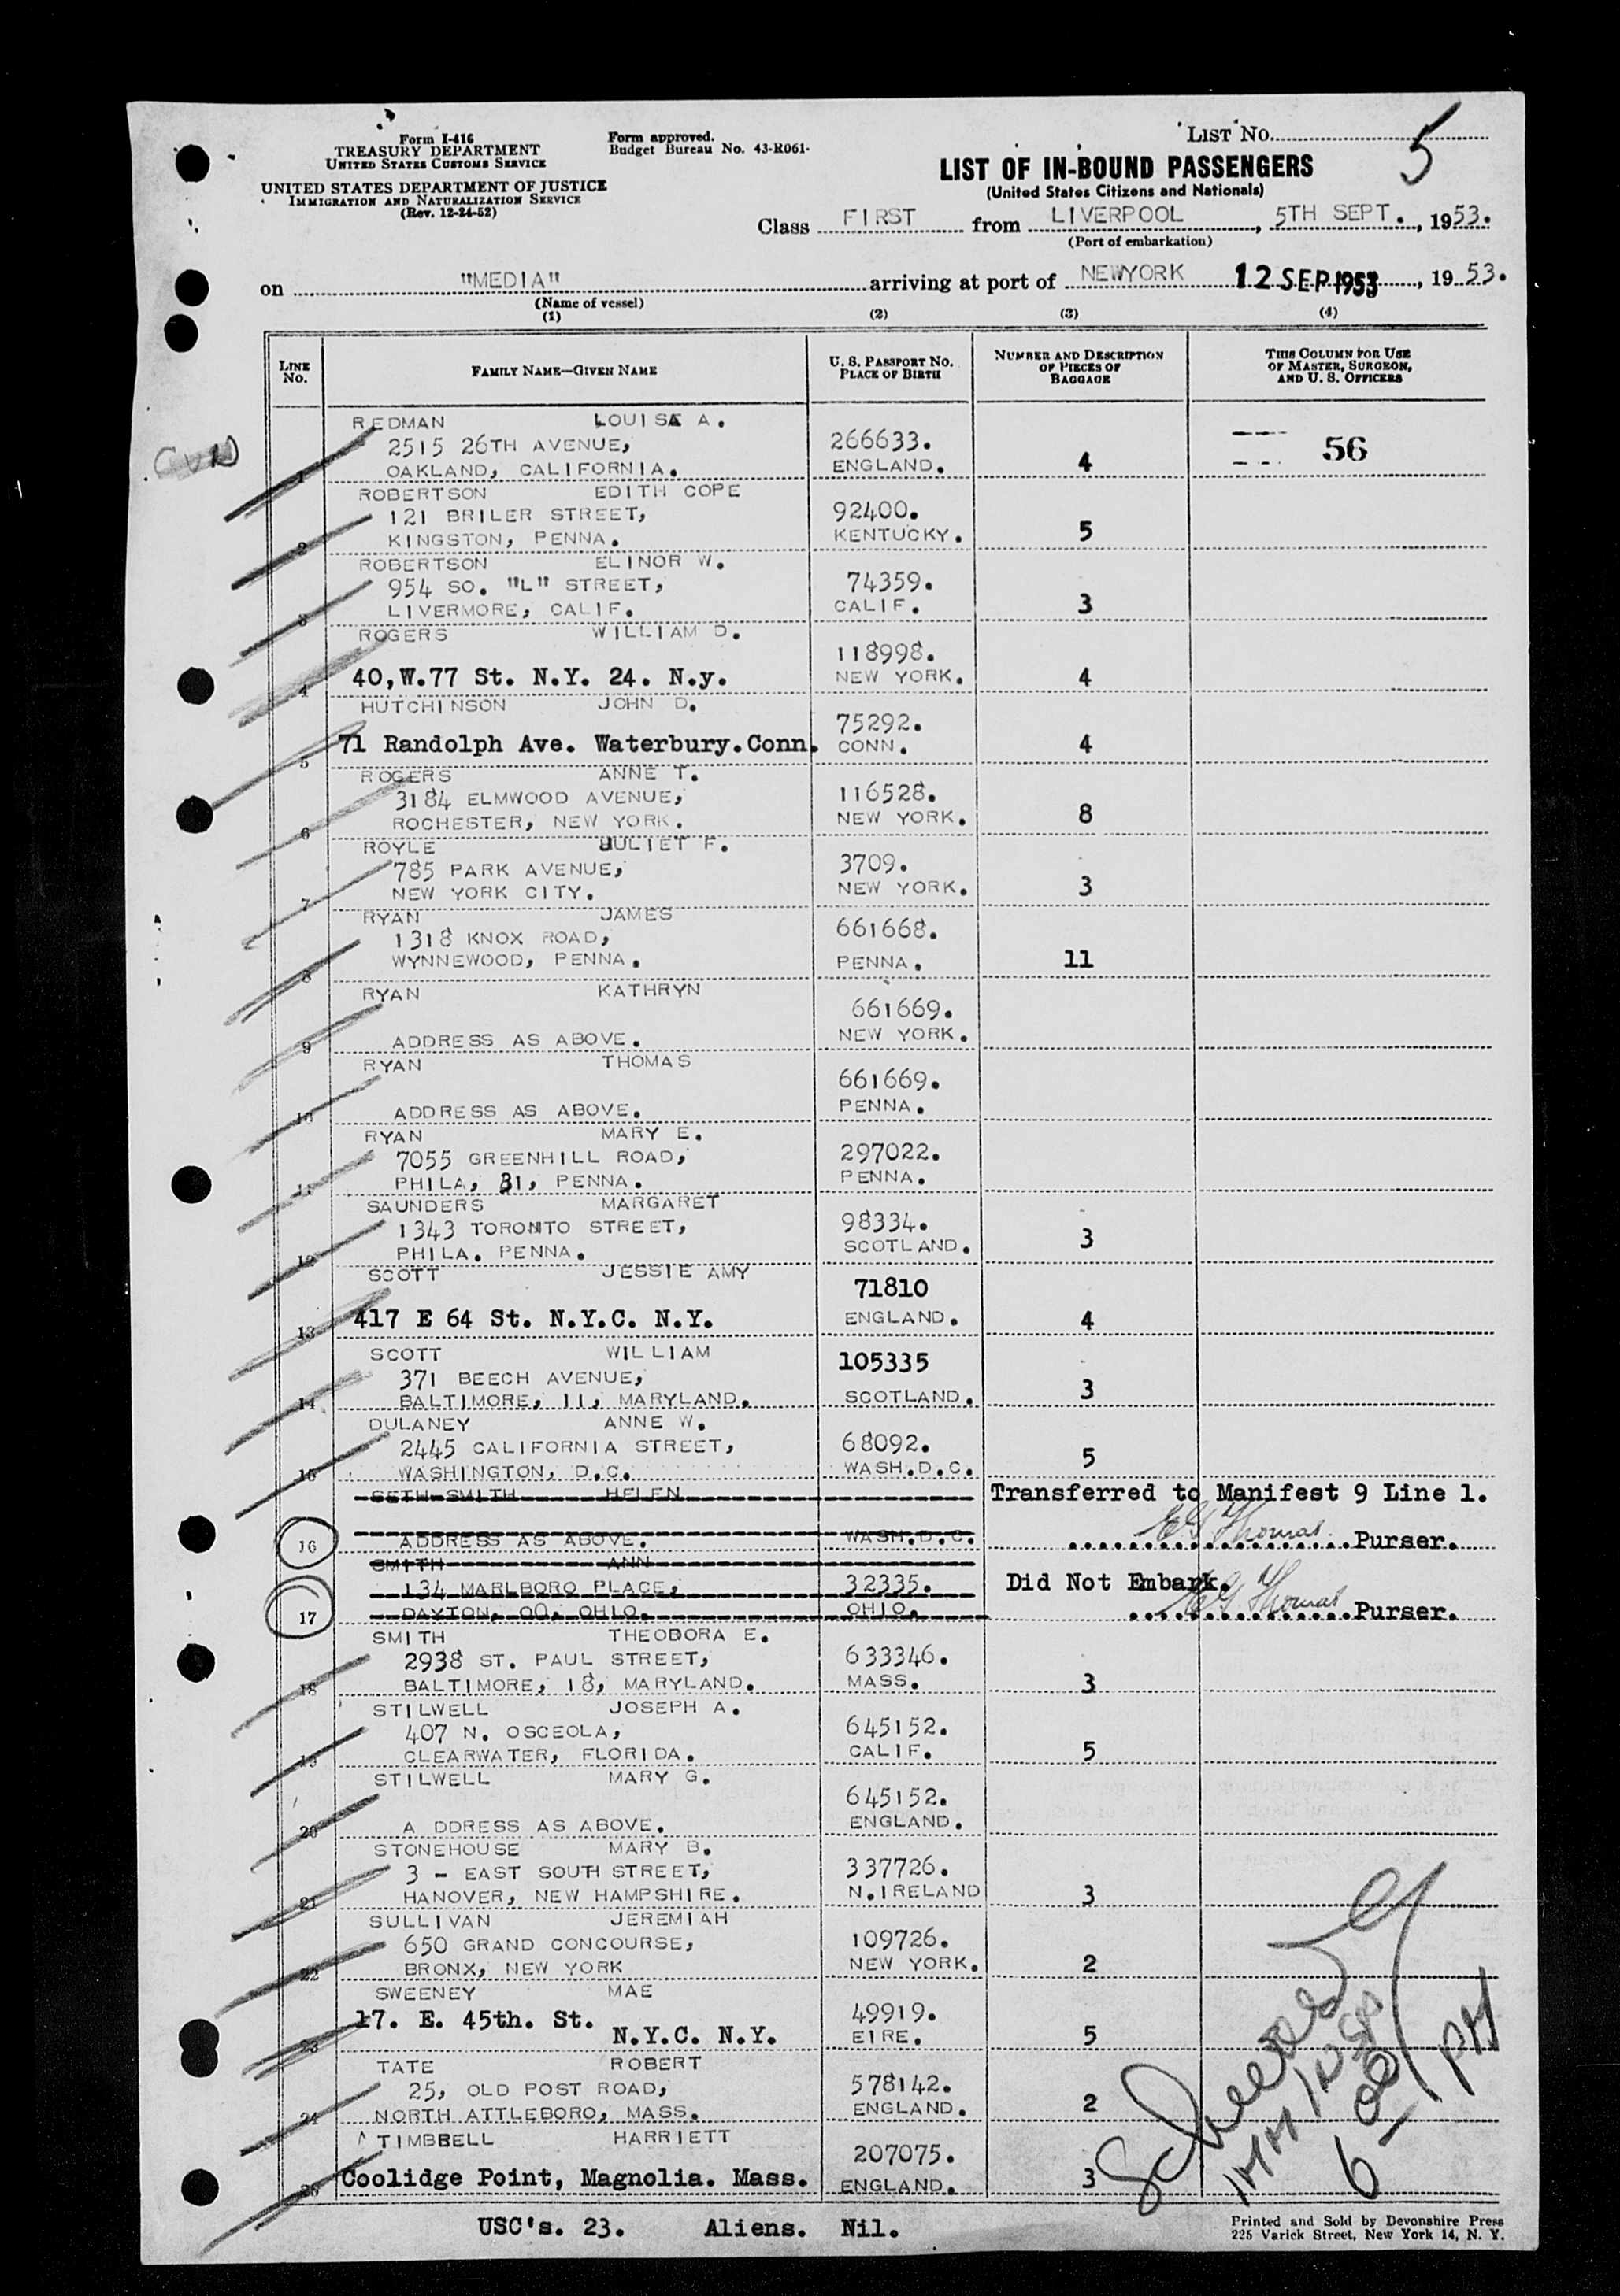 Form I-416
TREASURY DEPARTMENT
UNITED STATES CUSTOMS SERVICE
UNITED STATES DEPARTMENT OF JUSTICE
IMMIGRATION AND NATURALIZATION SERVICE
(Rev. 12-24-52)
Form approved.
Budget Bureau No. 43-R061-
LIST No. 5
LIST OF IN-BOUND PASSENGERS
(United States Citizens and Nationals)
Class FIRST from LIVERPOOL, 5TH SEPT., 1953.
(Port of embarkation)
on "MEDIA" arriving at port of NEWYORK 12 SEP 1953, 1953.
(Name of vessel)
(1) (2) (3) (4)
LINE No. FAMILY NAME—GIVEN NAME U. S. PASSPORT NO. PLACE OF BIRTH NUMBER AND DESCRIPTION OF PIECES OF BAGGAGE THIS COLUMN FOR USE OF MASTER, SURGEON, AND U. S. OFFICERS
REDMAN LOUISA A.
2515 26TH AVENUE, 266633. 56
1 OAKLAND, CALIFORNIA. ENGLAND. 4
ROBERTSON EDITH COPE
121 BRILER STREET, 92400.
2 KINGSTON, PENNA. KENTUCKY. 5
ROBERTSON ELINOR W.
954 SO. "L" STREET, 74359.
3 LIVERMORE, CALIF. CALIF. 3
ROGERS WILLIAM D.
118998.
4 40,W.77 St. N.Y. 24. N.y. NEW YORK. 4
HUTCHINSON JOHN D.
75292.
5 71 Randolph Ave. Waterbury.Conn. CONN. 4
ROGERS ANNE T.
3184 ELMWOOD AVENUE, 116528.
6 ROCHESTER, NEW YORK. NEW YORK. 8
ROYLE JULIET F.
785 PARK AVENUE, 3709.
7 NEW YORK CITY. NEW YORK. 3
RYAN JAMES
1318 KNOX ROAD, 661668.
8 WYNNEWOOD, PENNA. PENNA. 11
RYAN KATHRYN
661669.
9 ADDRESS AS ABOVE. NEW YORK.
RYAN THOMAS
661669.
10 ADDRESS AS ABOVE. PENNA.
RYAN MARY E.
7055 GREENHILL ROAD, 297022.
11 PHILA, 31, PENNA. PENNA.
SAUNDERS MARGARET
1343 TORONTO STREET, 98334.
12 PHILA. PENNA. SCOTLAND. 3
SCOTT JESSIE AMY
71810
13 417 E 64 St. N.Y.C. N.Y. ENGLAND. 4
SCOTT WILLIAM
371 BEECH AVENUE, 105335
14 BALTIMORE, 11, MARYLAND. SCOTLAND. 3
DULANEY ANNE W.
2445 CALIFORNIA STREET, 68092.
15 WASHINGTON, D.C. WASH.D.C. 5
SETH-SMITH HELEN Transferred to Manifest 9 Line 1.
16 ADDRESS AS ABOVE. WASH.D.C. EG Thomas Purser.
SMITH ANN
134 MARLBORO PLACE, 32335. Did Not Embark.
17 DAYTON, OO. OHIO. OHIO. EG Thomas Purser.
SMITH THEODORA E.
2938 ST. PAUL STREET, 633346.
18 BALTIMORE, 18, MARYLAND. MASS. 3
STILWELL JOSEPH A.
407 N. OSCEOLA, 645152.
19 CLEARWATER, FLORIDA. CALIF. 5
STILWELL MARY G.
645152.
20 A DDRESS AS ABOVE. ENGLAND.
STONEHOUSE MARY B.
3 - EAST SOUTH STREET, 337726.
21 HANOVER, NEW HAMPSHIRE. N.IRELAND 3
SULLIVAN JEREMIAH
650 GRAND CONCOURSE, 109726.
22 BRONX, NEW YORK NEW YORK. 2
SWEENEY MAE
17. E. 45th. St. 49919.
23 N.Y.C. N.Y. EIRE. 5
TATE ROBERT
25, OLD POST ROAD, 578142.
24 NORTH ATTLEBORO, MASS. ENGLAND. 2
TIMBRELL HARRIETT
207075.
25 Coolidge Point, Magnolia. Mass. ENGLAND. 3
USC's. 23. Aliens. Nil.
Printed and Sold by Devonshire Press
225 Varick Street, New York 14, N. Y.